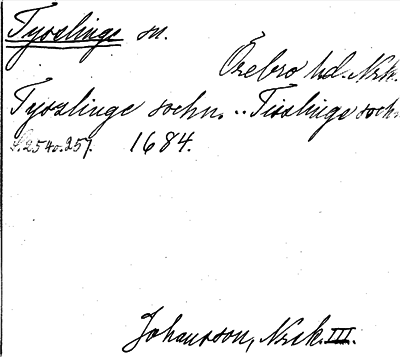 Tysslinge sn.
Örebro hd. Nrk.
Tysslinge sochn. .. Tisslinge soch.
s. 254 o. 257. 1684.
Johansson, Nrck. III.